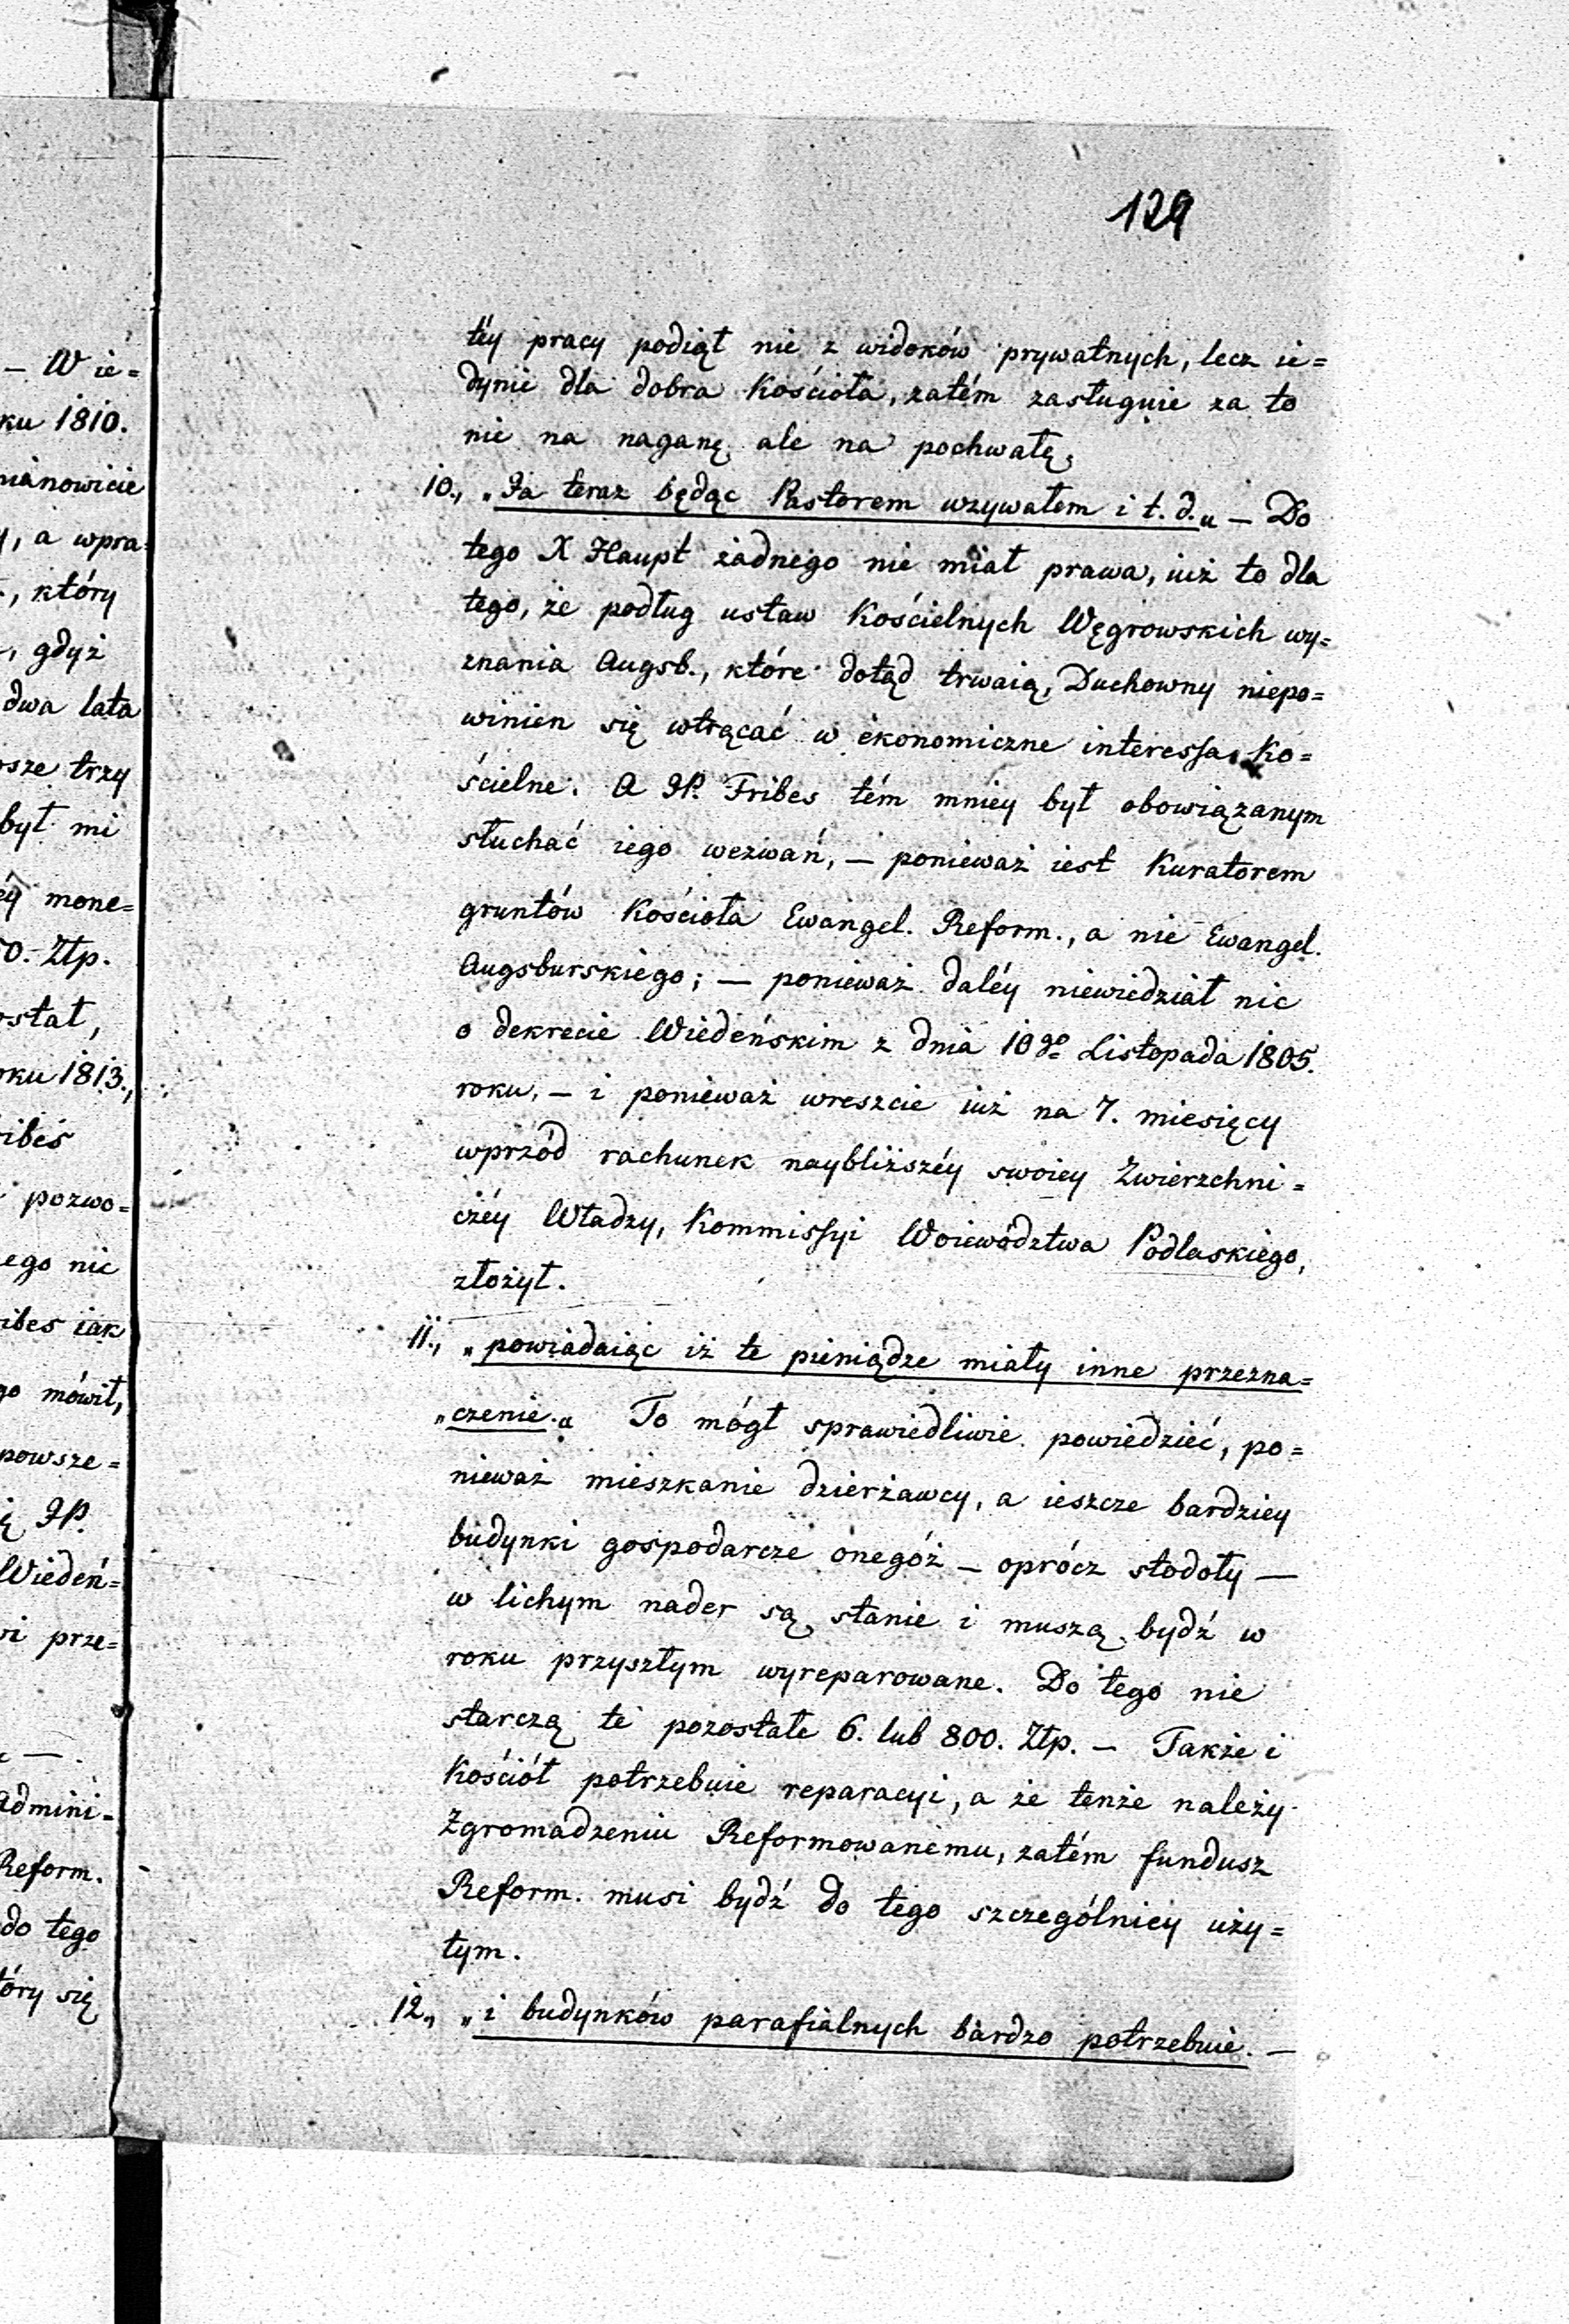 129
téy pracy podiął nie z widoków prywatnych, lecz ie=
dynie dla dobra Kościoła, zatém zasługuie za to
nie na naganę ale na pochwałę.
10., „Ja teraz będąc Pastorem wzywałem i t. d.„ — Do
tego X Haupt żadnego nie miał prawa, iuż to dla
tego, że podług ustaw Kościelnych Węgrowskich wy=
znania Augsb., które dotąd trwaią, Duchowny niepo=
winien się wtrącać w ekonomiczne interessa Ko=
ścielne. A JP. Fribes tém mniey był obowiązanym
słuchać iego wezwań, — ponieważ iest Kuratorem
gruntów Kościoła Ewangel. Reform., a nie Ewangel.
Augsburskiego; — ponieważ daléy niewiedział nic
o dekrecie Wiedeńskim z dnia 10go Listopada 1805.
roku, — i ponieważ wreszcie iuż na 7. miesięcy
wprzód rachunek naybliższéy swoiey Zwierzchni=
czéy Władzy, Kommissyi Woiewództwa Podlaskiego,
złożył.
11., „powiadaiąc iż te pieniądze miały inne przezna=
„czenie.„ To mógł sprawiedliwie powiedzieć, po=
nieważ mieszkanie dzierżawcy, a ieszcze bardziey
budynki gospodarcze onegóż — oprócz stodoły —
w lichym nader są stanie i muszą bydź w
roku przyszłym wyreparowane. Do tego nie
starczą te pozostałe 6. lub 800. Złp. — Także i
Kościół potrzebuie reparacyi, a że tenże należy
Zgromadzeniu Reformowanemu, zatém fundusz
Reform. musi bydź do tego szczególniey uży=
tym.
12., „i budynków parafialnych bardzo potrzebuie. —
— W ie=
ku 1810.
mianowicie
, a wpra=
, który
, gdyż
dwa lata
sze trzy
był mi
éy mone=
0. Złp.
ostał,
oku 1813.,
ibes
pozwo=
ego nic
ibes iak
go mówił,
powsze=
ę JP.
Wiedeń=
i prze=
—
admini=
Reform.
do tego
tóry się